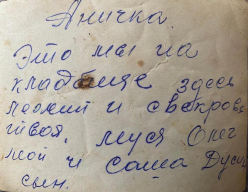 Аничка
Это мы на
кладбище здесь
лежит и свекровь
твоя, Муся Олег
мой и Саша Дуси
сын.